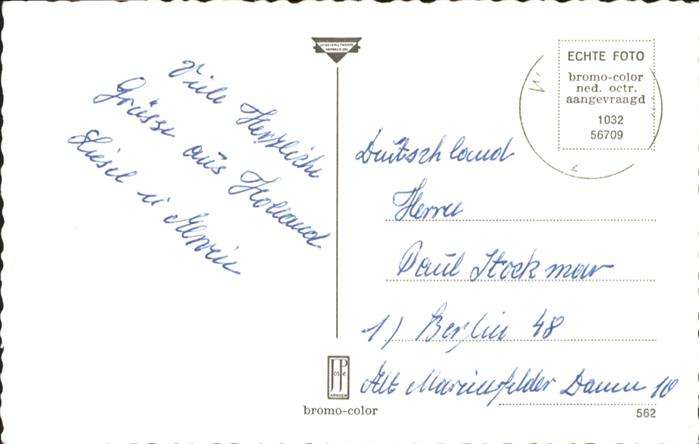 Viele Herzliche
Grüsse aus Holland
Liesel u
ECHTE FOTO
bromo-color
ned. octr.
aangevraagd
1032
56709
Deutschland
Herrn
Paul Stockmar
1) Berlin 48
Alt Marienfelder Damm 10
JosPé
bromo-color
562